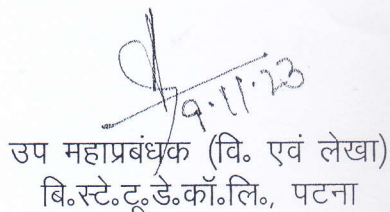 9.11.23
उप महाप्रबंधक (वि॰ एवं लेखा)
बि॰स्टे॰टू॰डे॰कॉ॰लि॰, पटना